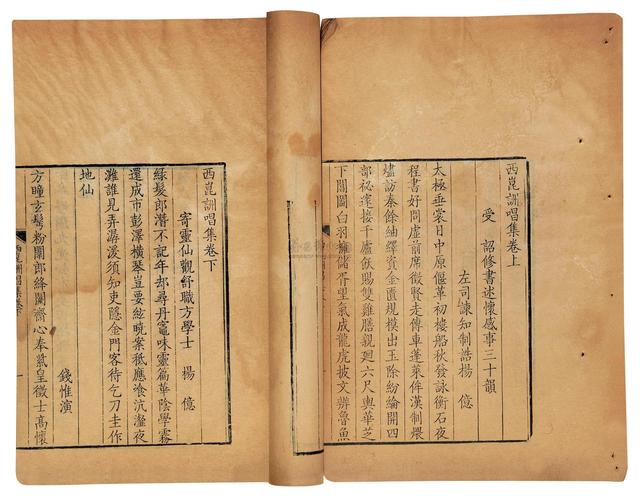 西崑詶唱集卷上
受 詔修書述懷感事三十韻
左司諫知制誥楊 億
太極垂裳日中原偃革初樓船秋發詠衡石夜
程書好問虛前席徵賢走傳車蓬萊侔漢制煨
燼訪秦餘紬繹資金匱規模出玉除紛綸開四
部祕邃接千廬飫賜雙雞膳親廻六尺輿華芝
下閬圃白羽擁儲胥望氣成龍虎披文辨魯魚
西崑詶唱集卷下
寄靈仙觀舒職方學士 楊 億
綠髮郎潛不記年却尋丹竈味靈篇華陰學霧
還成市彭澤橫琴豈要絃曉案秪應飡沆瀣夜
灘誰見弄潺湲須知吏隱金門客待乞刀圭作
地仙
錢惟演
方瞳玄鬢粉闈郎絳闕齋心奉紫皇徵士高懷